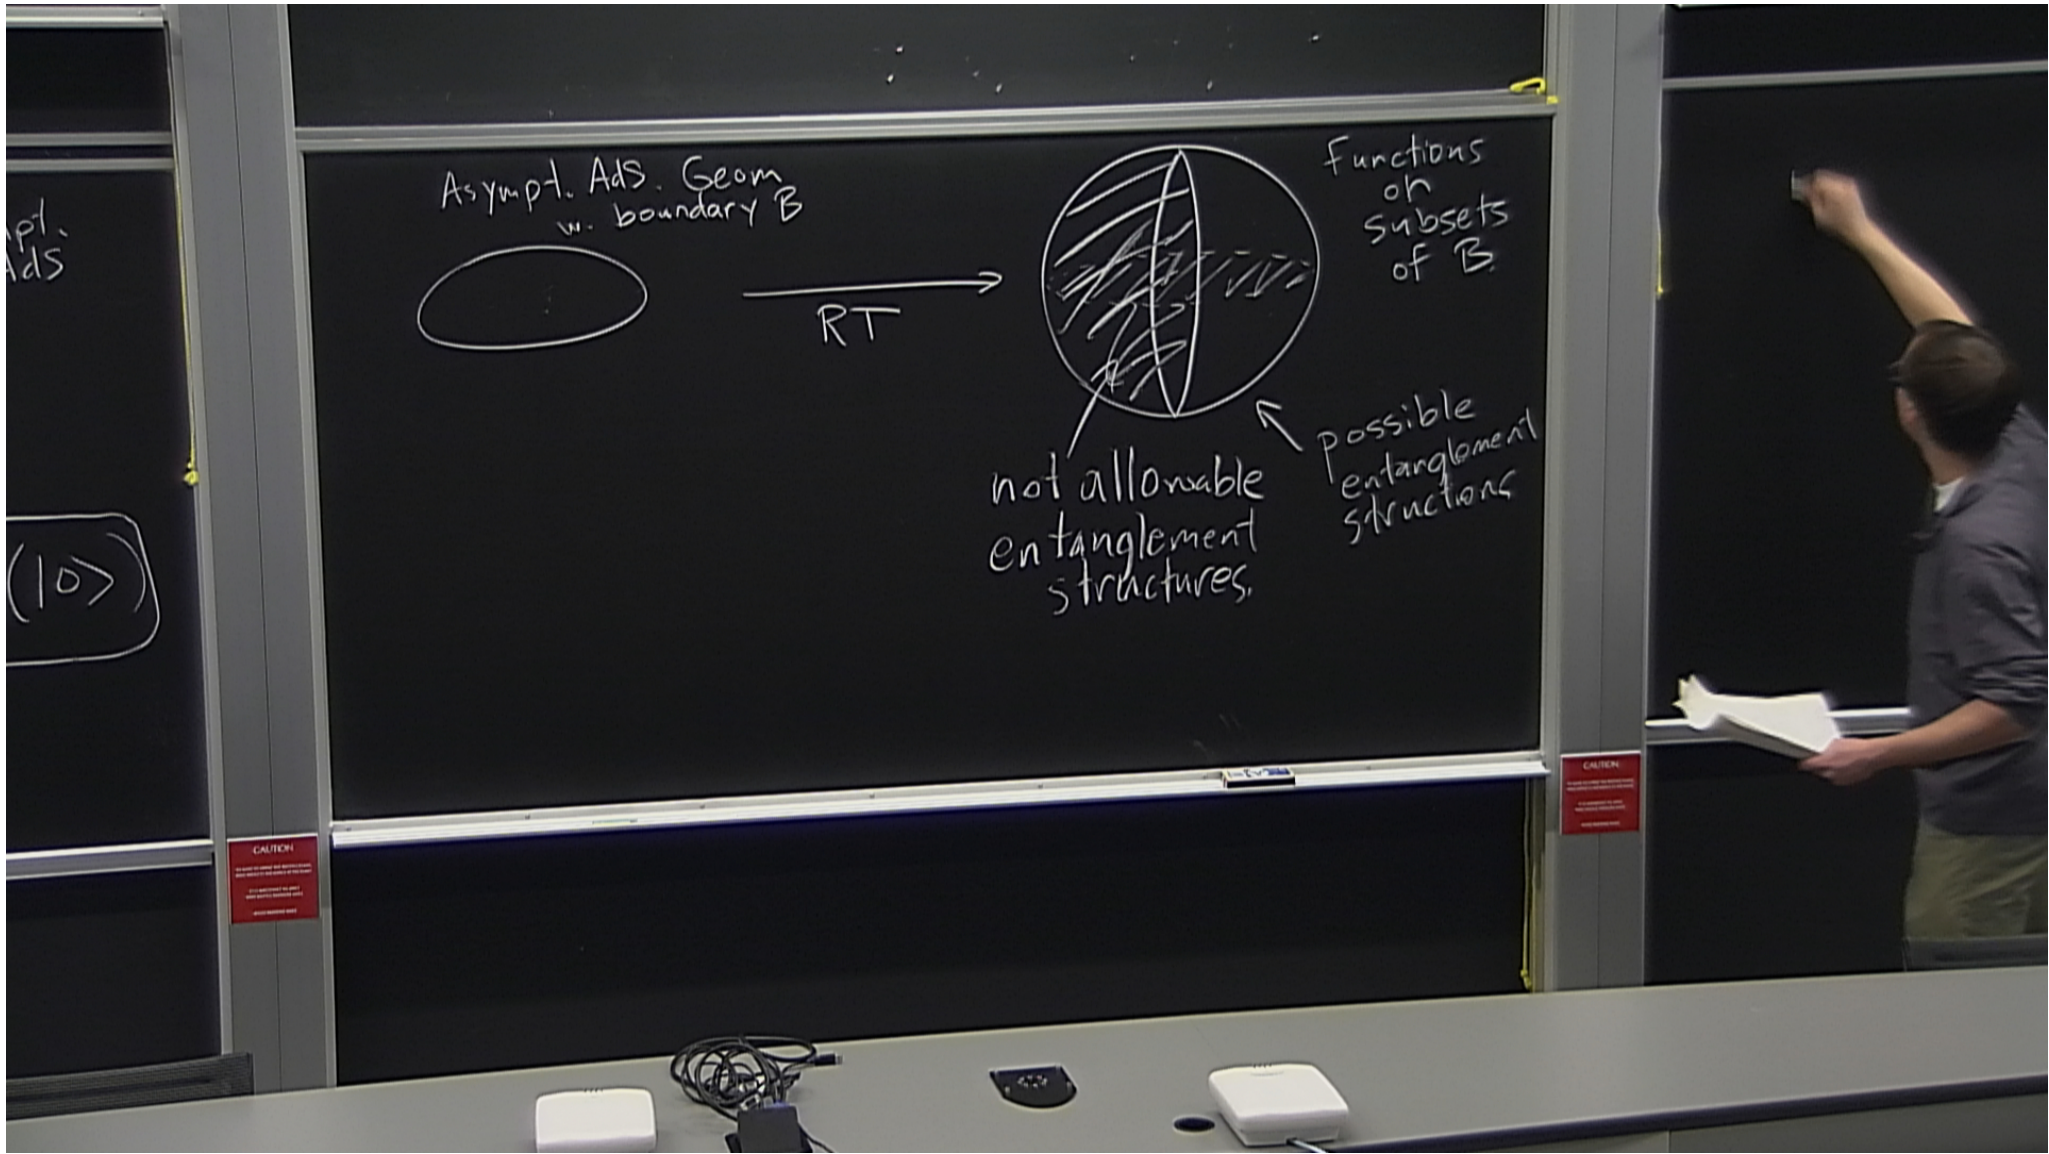 pt.
AdS
(|0>)
Asympt. AdS. Geom
w. boundary B
RT
Functions
on
subsets
of B
possible
entanglement
structions
not allowable
entanglement
structures.
CAUTION
CAUTION